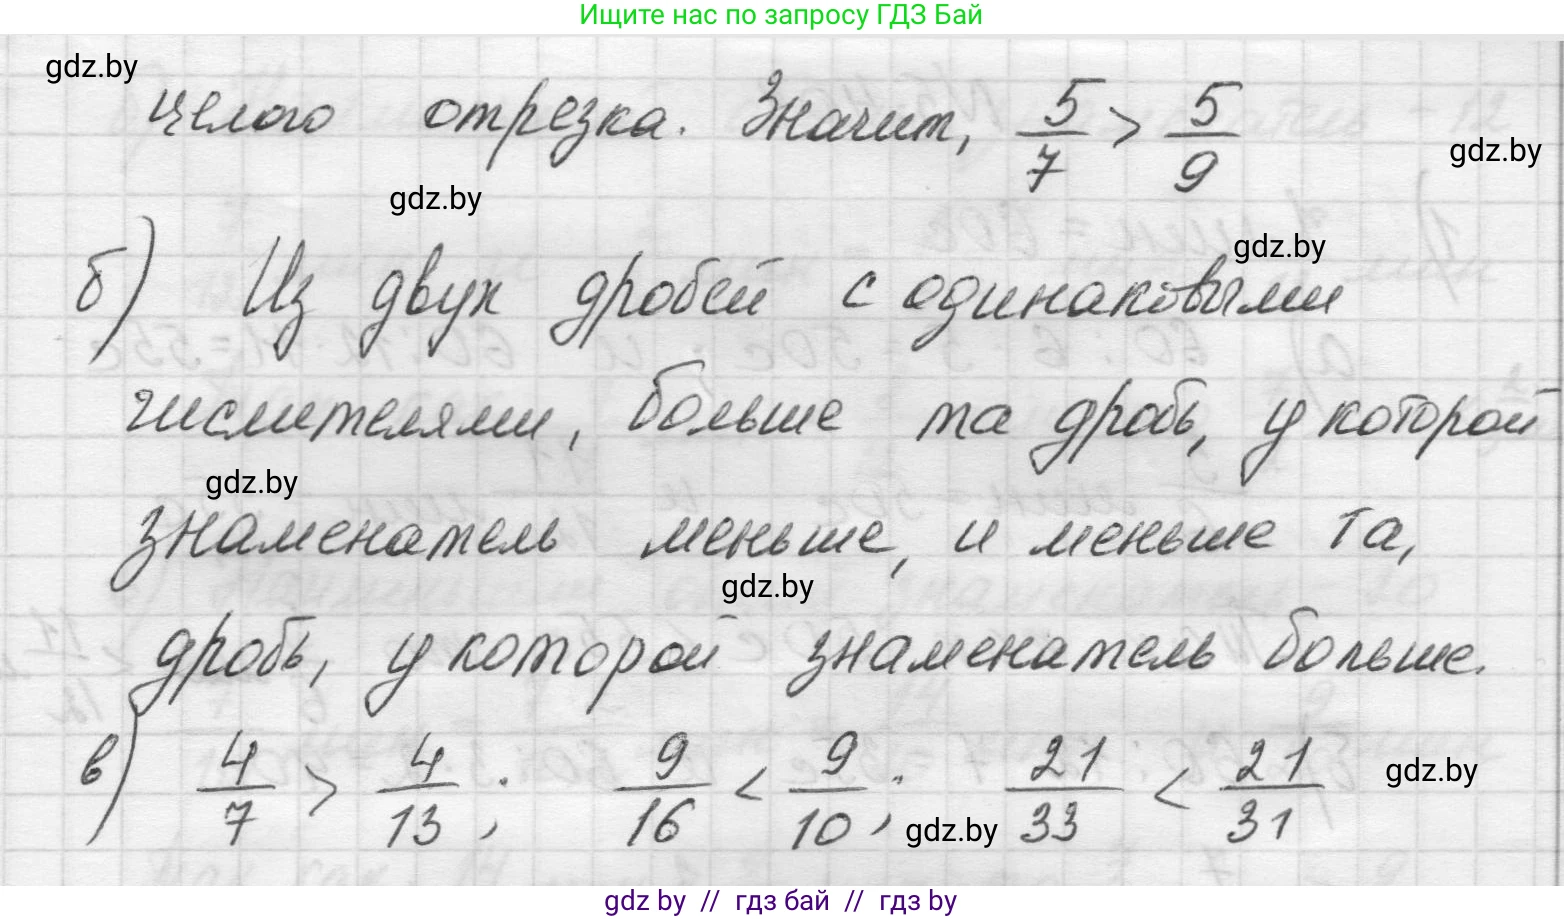 Ищите нас по запросу ГДЗ Бай
gdz.by
целого отрезка. Значит, 5/7 > 5/9
gdz.by
gdz.by
gdz.by
б) Из двух дробей с одинаковыми
числителями, больше та дробь, у которой
gdz.by
знаменатель меньше, и меньше та,
gdz.by
дробь, у которой знаменатель больше.
в) 4/7 > 4/13; 9/16 < 9/10; 21/33 < 21/31
gdz.by
gdz.by
gdz by // гдз бай // гдз by